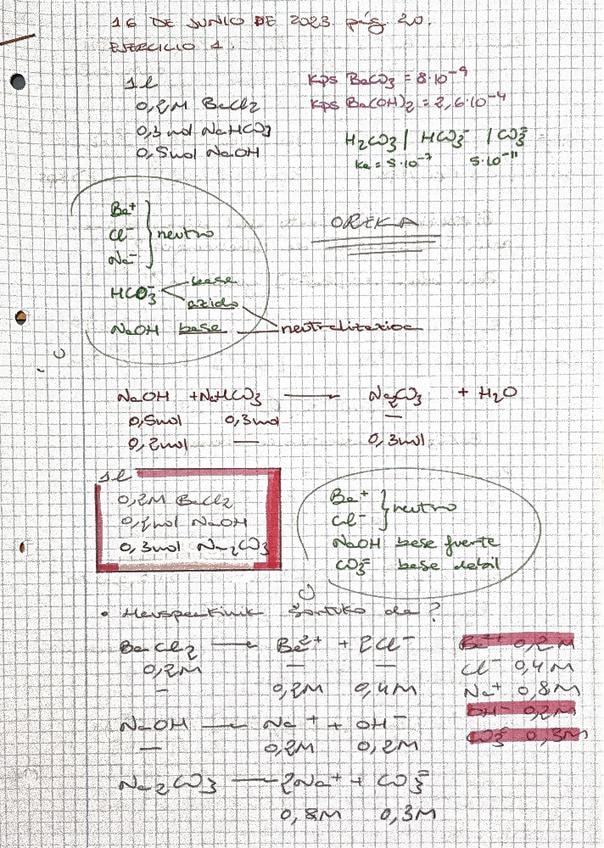 16 DE JUNIO DE 2023. pág 20.
EJERCICIO 1.
1l
0,2M BaCl2
0,3mol NaHCO3
0,5mol NaOH
Kps BaCO3 = 8·10⁻⁹
Kps Ba(OH)2 = 2,6·10⁻⁴
H2CO3 / HCO3⁻ / CO3⁼
Ka = 5·10⁻⁷ 5·10⁻¹¹
Ba⁺
Cl⁻ } neutro
Na⁻
HCO3⁻ < base
azido
NaOH base
neutralizazioa
OREKA
NaOH + NaHCO3 → Na2CO3 + H2O
0,5mol 0,3mol —
0,2mol — 0,3mol
1l
0,2M BaCl2
0,2mol NaOH
0,3mol Na2CO3
Ba⁺
Cl⁻ } neutro
NaOH base fuerte
CO3⁼ base debil
• Hauspeakinik sortuko da?
BaCl2 → Ba²⁺ + 2Cl⁻
0,2M — —
— 0,2M 0,4M
NaOH → Na⁺ + OH⁻
— 0,2M 0,2M
Na2CO3 → 2Na⁺ + CO3⁼
0,8M 0,3M
Ba²⁺ 0,2M
Cl⁻ 0,4M
Na⁺ 0,8M
OH⁻ 0,2M
CO3⁼ 0,3M